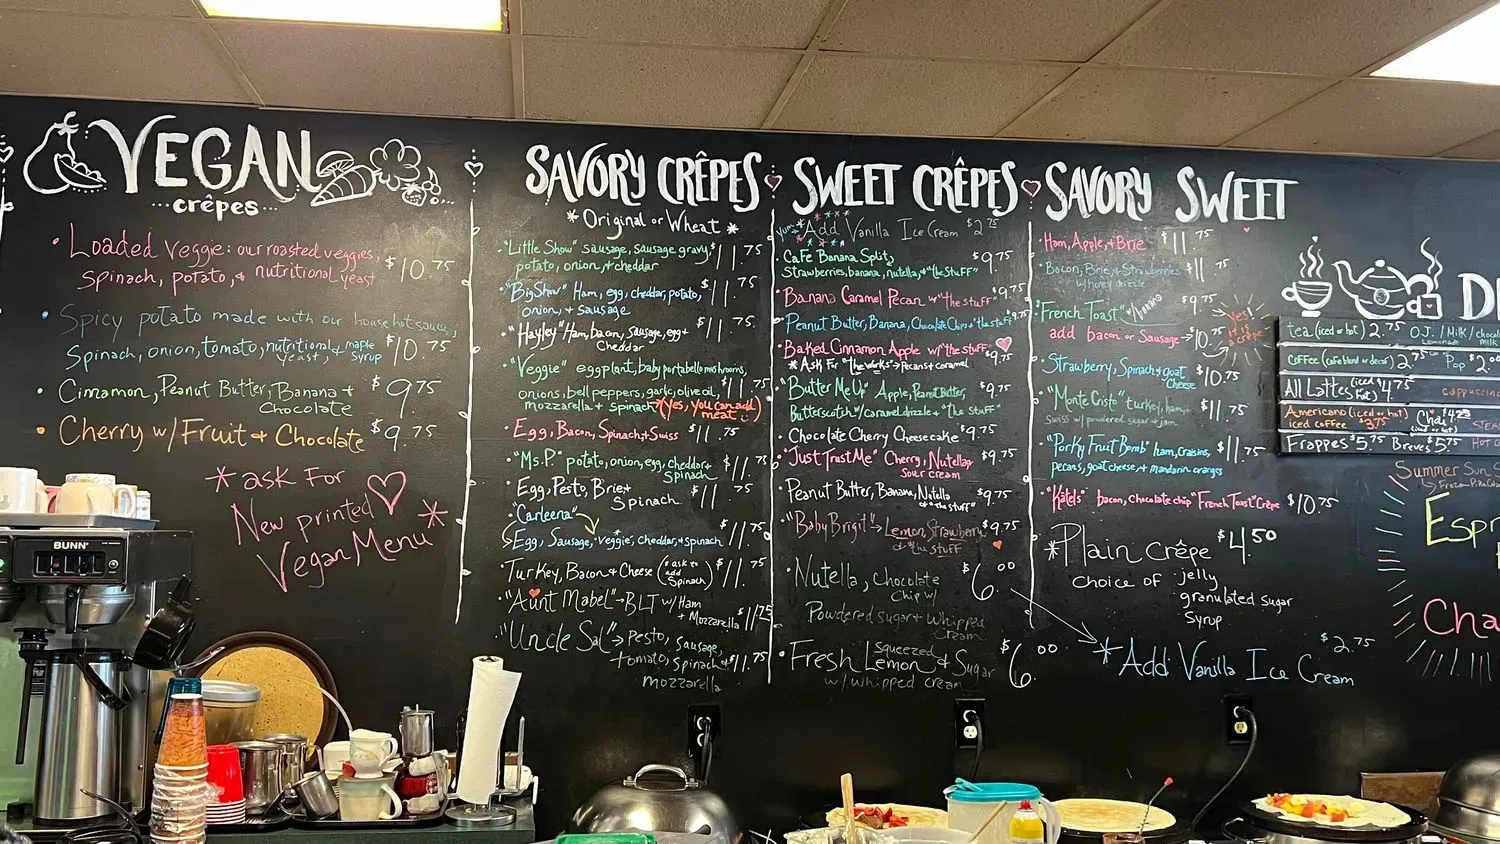 VEGAN
crêpes
Loaded Veggie: our roasted veggies,
Spinach, potato, + nutritional yeast $10.75
Spicy potato made with our house hot sauce,
Spinach, onion, tomato, nutritional yeast, + maple syrup $10.75
Cinnamon, Peanut Butter, Banana +
Chocolate $9.75
Cherry w/ Fruit + Chocolate $9.75
*ask For
New printed
Vegan Menu*
SAVORY CRÊPES
*Original or Wheat*
"Little Show" sausage, sausage gravy,
potato, onion, + cheddar $11.75
"Big Show" Ham, egg, cheddar, potato,
onion, + sausage $11.75
"Hayley" Ham, bacon, sausage, egg +
Cheddar $11.75
"Veggie" eggplant, baby portabello mushrooms,
onions, bell peppers, garlic, olive oil, $11.75
mozzarella + spinach (Yes, you can add meat!)
Egg, Bacon, Spinach + Swiss $11.75
"Ms. P." potato, onion, egg, cheddar +
Spinach $11.75
Egg, Pesto, Brie +
Spinach $11.75
"Carleena"
Egg, Sausage, veggie, cheddar, + spinach $11.75
Turkey, Bacon + Cheese (ask to add Spinach) $11.75
"Aunt Mabel" BLT w/ Ham
+ Mozzarella $11.75
"Uncle Sal" Pesto, Sausage,
tomato, Spinach + $11.75
mozzarella
SWEET CRÊPES
Add Vanilla Ice Cream $2.75
Cafe Banana Split,
Strawberries, banana, nutella, + "the stuff" $9.75
Banana Caramel Pecan w/ "the stuff" $9.75
Peanut Butter, Banana, Chocolate Chips + the stuff $9.75
Baked Cinnamon Apple w/ "the stuff" $9.75
*Ask For "the works" pecans + caramel
"Butter Me Up" Apples, Peanut Butter,
Butterscotch w/ caramel drizzle + "the stuff" $9.75
Chocolate Cherry Cheesecake $9.75
"Just Trust Me" Cherry, Nutella +
Sour cream $9.75
Peanut Butter, Banana, Nutella
+ "the stuff" $9.75
"Baby Brigit" Lemon, Strawberry $9.75
+ the stuff
Nutella, Chocolate $6.00
Chip w/
Powdered sugar + Whipped
Cream
Fresh Squeezed Lemon + Sugar $6.00
w/ whipped cream
SAVORY SWEET
Ham, Apple, + Brie $11.75
Bacon, Brie, + Strawberries $11.75
w/ honey drizzle
"French Toast" $9.75
add bacon or Sausage $10.75
Yes!
it's
a crêpe
Strawberry, Spinach + goat
Cheese $10.75
"Monte Cristo" turkey, ham,
swiss w/ powdered sugar + jam $11.75
"Porky Fruit Bomb" ham, craisins,
pecans, goat cheese, + mandarin oranges $11.75
"Katel's" bacon, chocolate chip "French Toast" Crêpe $10.75
*Plain Crêpe $4.50
choice of jelly
granulated sugar
Syrup
*Add Vanilla Ice Cream $2.75
tea (iced or hot) 2.75 O.J. / Milk /
Lemonade
coffee (cafe blend or decaf) 2.75 Pop $2.00
All Lattes (iced or hot) $4.75
Americano (iced or hot) $3.75
iced coffee
Chai
(iced or hot)
Frappes $5.75 Breve $5.75
Summer Sun
BUNN